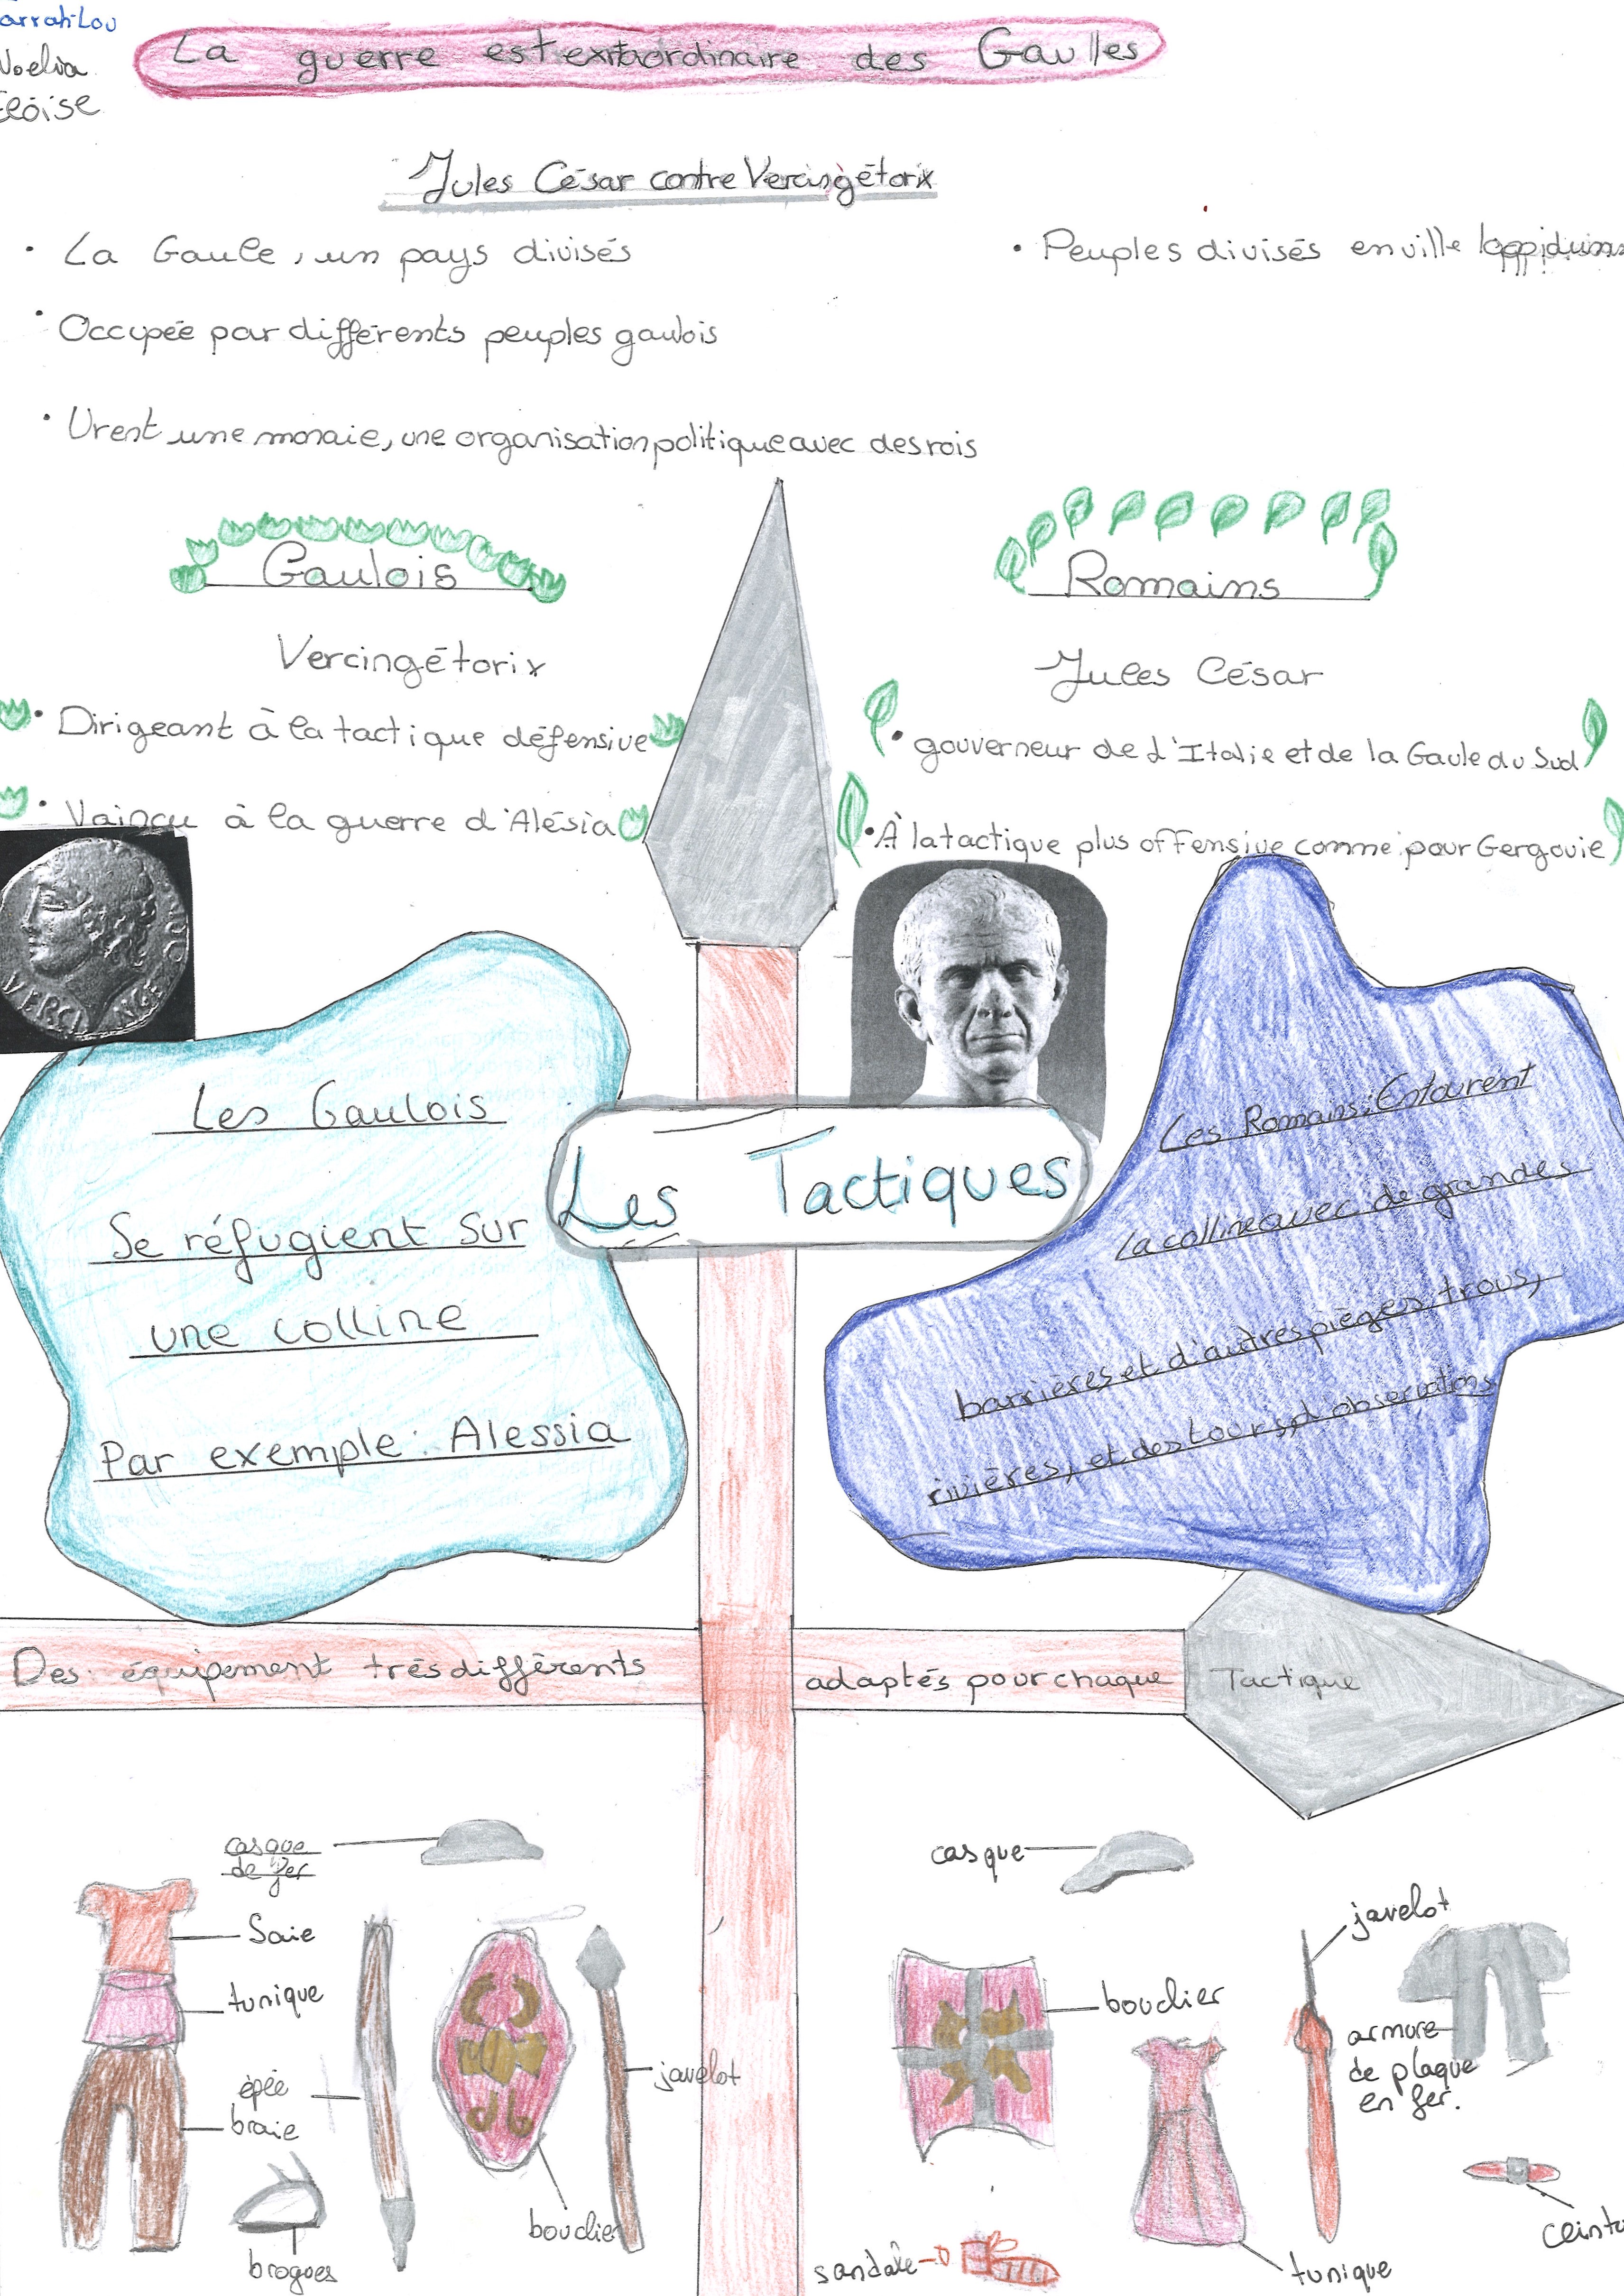 arrah-Lou
Noelia
Eloïse
La guerre est extraordinaire des Gaulles
Jules César contre Vercingétorix
• La Gaule, un pays divisés
• Peuples divisés en ville
• Occupée par différents peuples gaulois
• Urent une monaie, une organisation politique avec des rois
Gaulois
Vercingétorix
• Dirigeant à la tactique défensive
• Vaincu à la guerre d'Alésia
Romains
Jules César
• gouverneur de l'Italie et de la Gaule du Sud
• À la tactique plus offensive comme pour Gergovie
VERCI NGE
Les Tactiques
Les Gaulois
Se réfugient sur
une colline
Par exemple : Alessia
Les Romains : Entourent
la colline avec de grandes
barrières et d'autres pièges, trous,
rivières, et des tours d'observations
Des équipement trés différents adaptés pour chaque Tactique
casque
de fer
Saie
tunique
épée
braie
brogues
bouclier
javelot
casque
bouclier
javelot
armure
de plaque
en fer.
ceintu
tunique
sandale